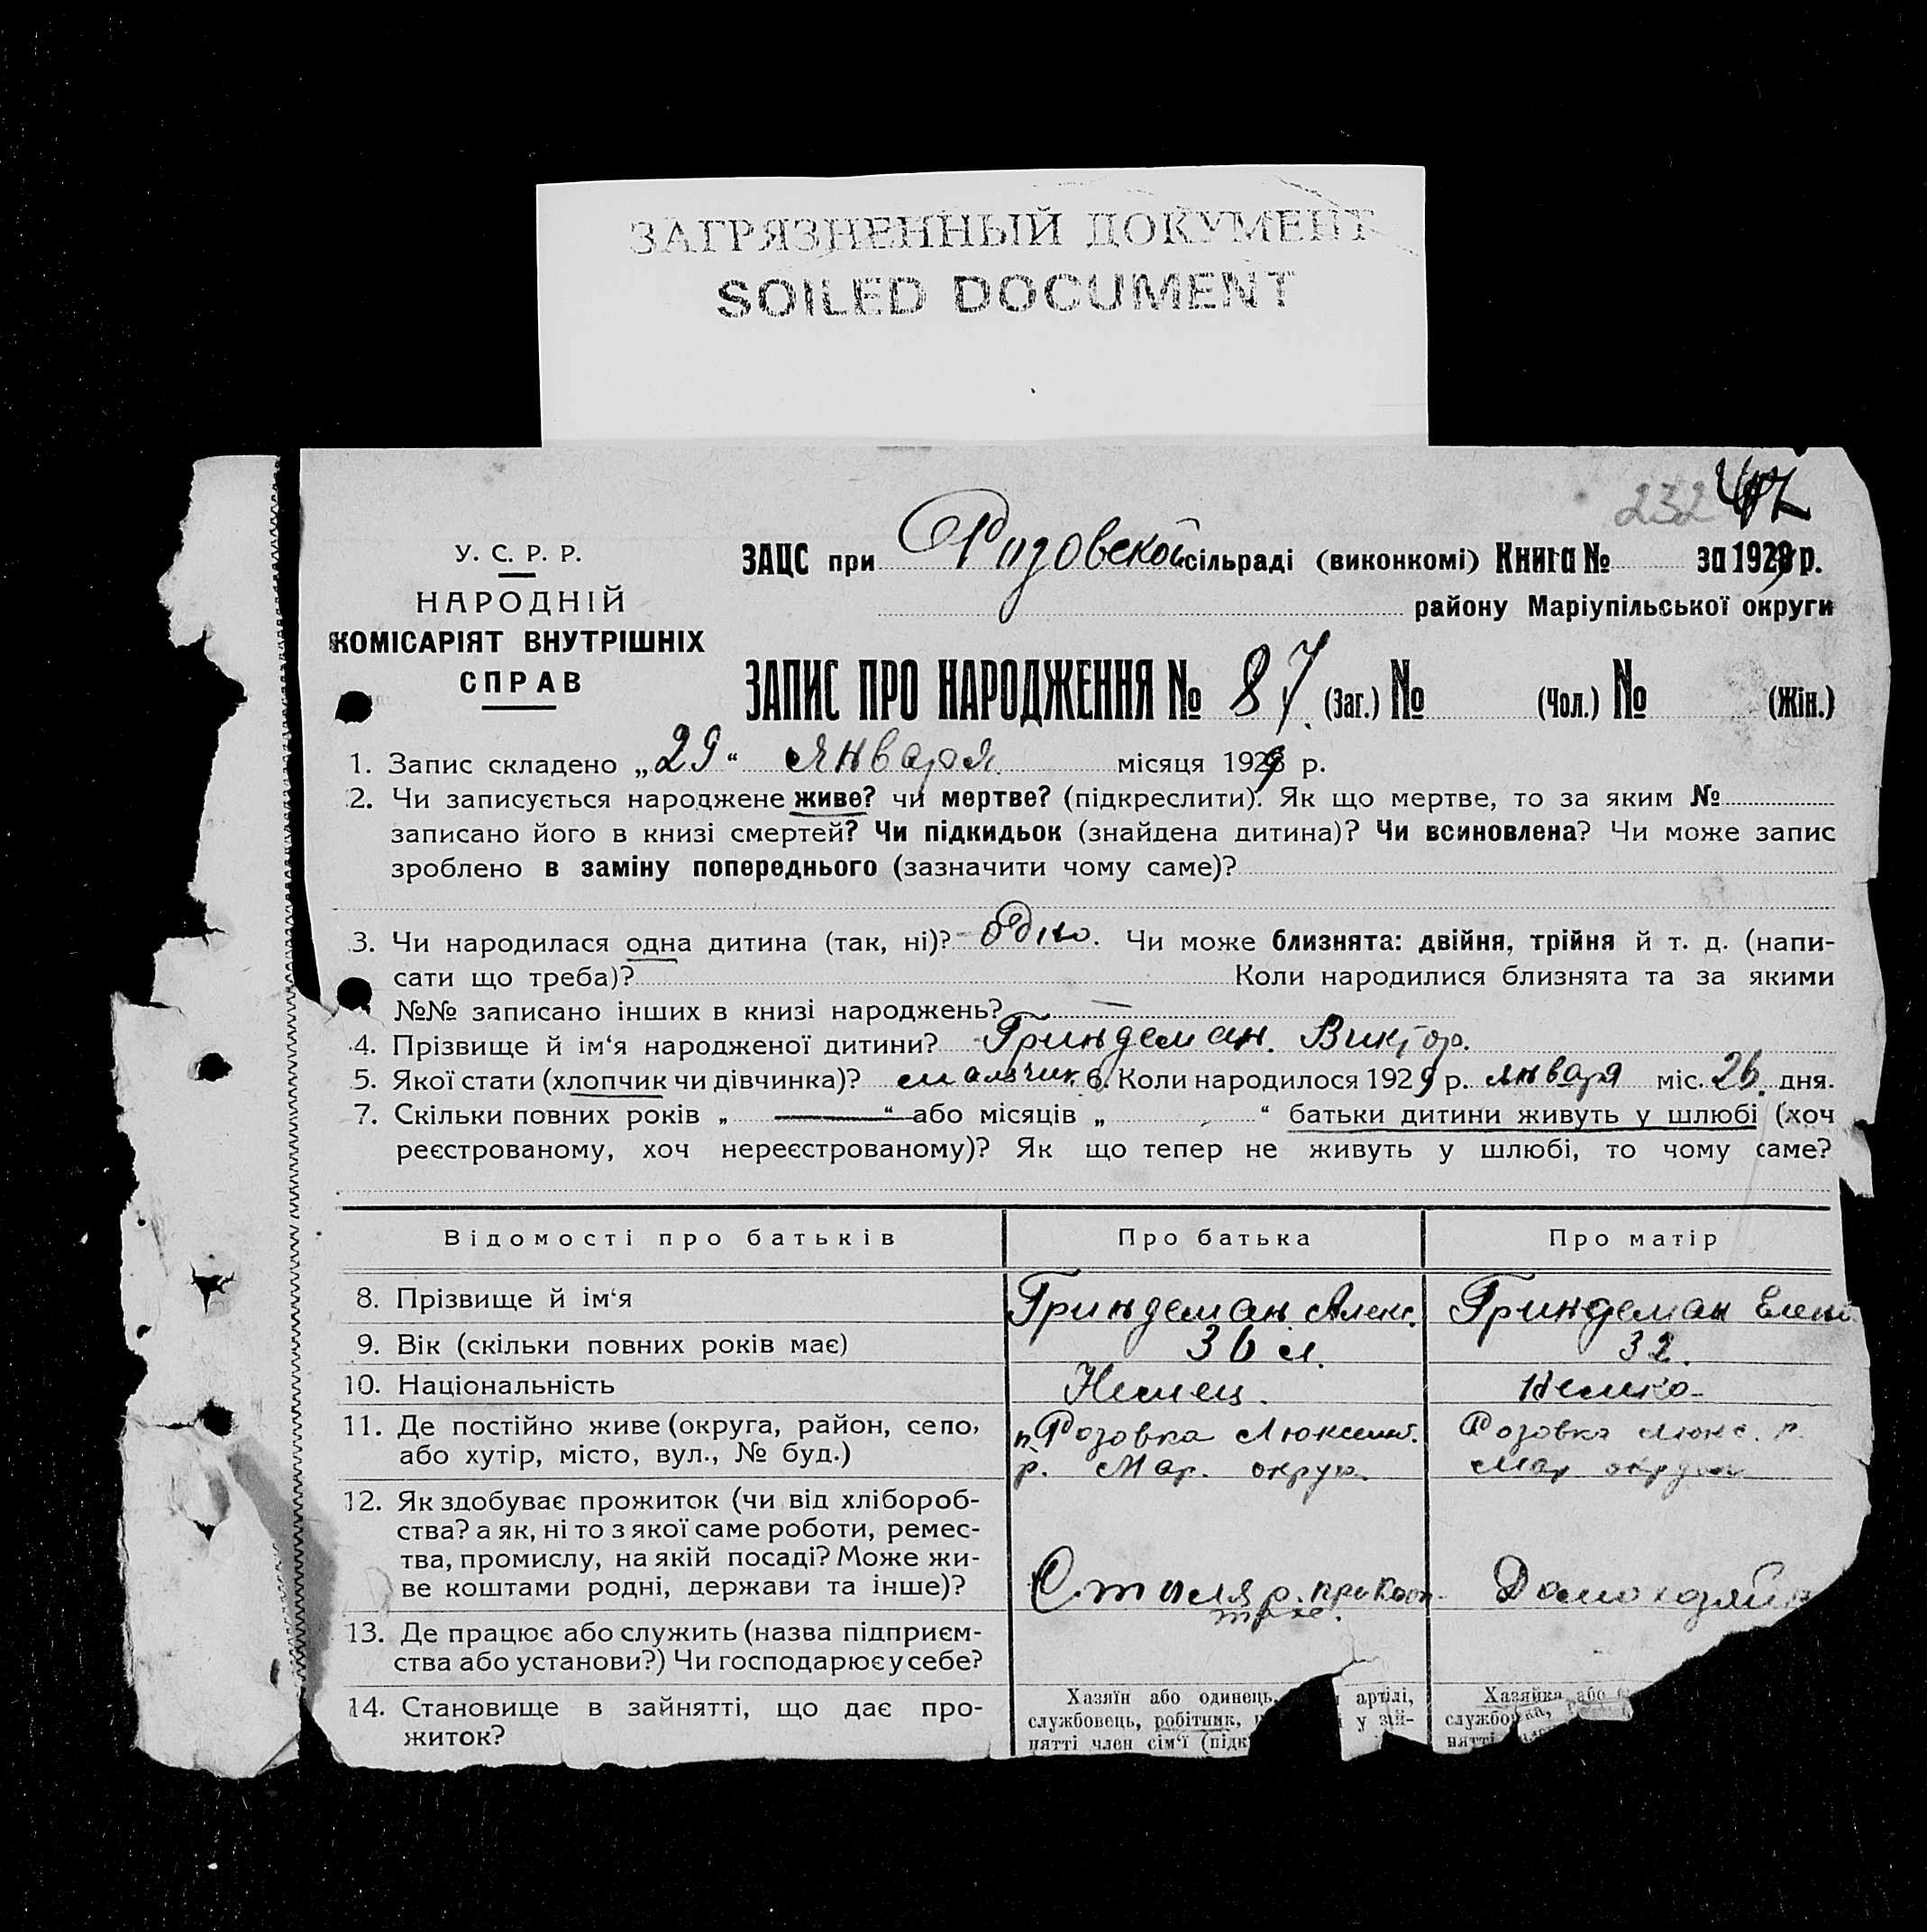 ЗАГРЯЗНЕННЫЙ ДОКУМЕНТ
SOILED DOCUMENT
232
У. С. Р. Р.
НАРОДНІЙ
КОМІСАРІЯТ ВНУТРІШНІХ
СПРАВ
ЗАЦС при Розовской сільраді (виконкомі) Книга № за 1929 р.
району Маріупільської округи
ЗАПИС ПРО НАРОДЖЕННЯ № 87 (Заг.) № (Чол.) № (Жін.)
1. Запис складено „29“ января місяця 1929 р.
2. Чи записується народжене живе? чи мертве? (підкреслити). Як що мертве, то за яким №
записано його в книзі смертей? Чи підкидьок (знайдена дитина)? Чи всиновлена? Чи може запис
зроблено в заміну попереднього (зазначити чому саме)?
3. Чи народилася одна дитина (так, ні)? одно. Чи може близнята: двійня, трійня й т. д. (напи-
сати що треба)? Коли народилися близнята та за якими
№№ записано інших в книзі народжень? —
4. Прізвище й ім‘я народженої дитини? Гриндеман. Виктор.
5. Якої стати (хлопчик чи дівчинка)? мальчик. 6. Коли народилося 1929 р. января міс. 26 дня.
7. Скільки повних років „ “ або місяців „ “ батьки дитини живуть у шлюбі (хоч
реєстрованому, хоч нереєстрованому)? Як що тепер не живуть у шлюбі, то чому саме?
Відомості про батьків Про батька Про матір
8. Прізвище й ім‘я Гриндеман Алекс. Гриндеман Елена
9. Вік (скільки повних років має) 36 л. 32.
10. Національність Немец. Немка
11. Де постійно живе (округа, район, село, п. Розовка Люксемб. Розовка Люкс. р.
або хутір, місто, вул., № буд.) р. Мар. округа. Мар округа
12. Як здобуває прожиток (чи від хлібороб-
ства? а як, ні то з якої саме роботи, ремес-
тва, промислу, на якій посаді? Може жи-
ве коштами родні, держави та інше)? Столяр. при Домохозяй
13. Де працює або служить (назва підприєм-
ства або установи?) Чи господарює у себе?
14. Становище в зайнятті, що дає про-
житок?
Хазяїн або одинець, артілі,
службовець, робітник, у зай-
нятті член сім‘ї (підк
Хазяйка або
службовка,
нятті